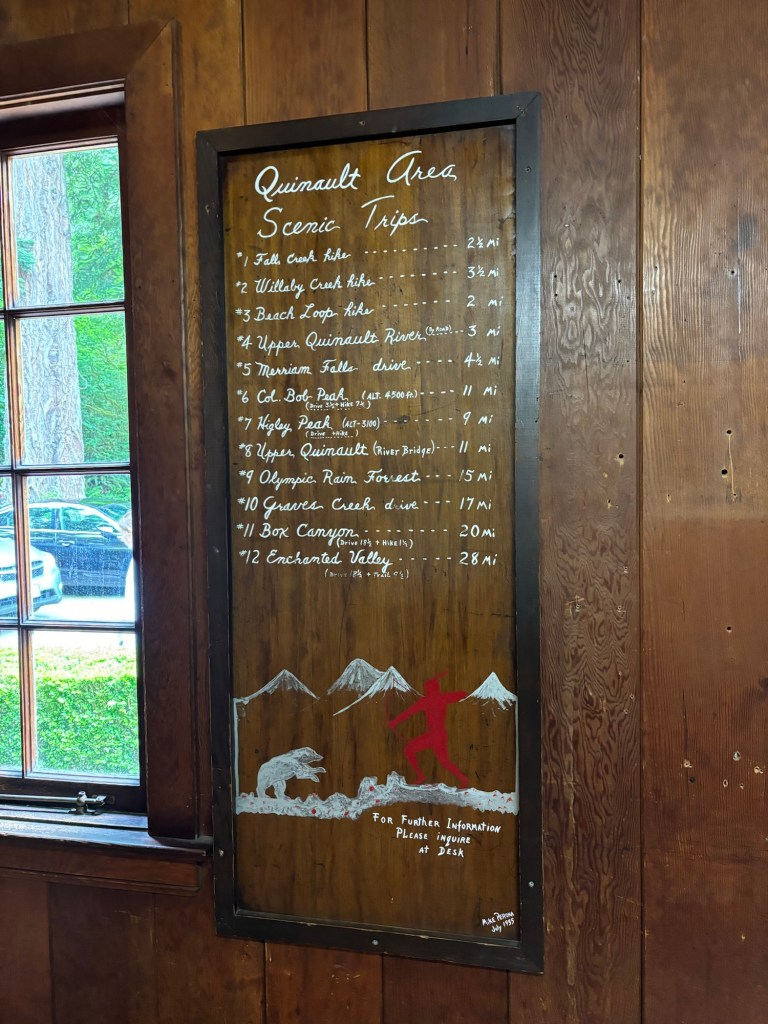 Quinault Area
Scenic Trips
#1 Falls Creek hike ---------- 2½ Mi
#2 Willaby Creek hike -------- 3½ Mi
#3 Beach Loop hike -------- 2 Mi
#4 Upper Quinault River (By Road) -- 3 Mi
#5 Merriam Falls drive ---- 4½ Mi
#6 Col. Bob Peak (ALT. 4500 Ft.) --- 11 Mi
(Drive 3½ + Hike 7½)
#7 Higley Peak (ALT-3100) ------ 9 Mi
(Drive + Hike)
#8 Upper Quinault (River Bridge) --- 11 Mi
#9 Olympic Rain Forrest --- 15 Mi
#10 Graves Creek drive --- 17 Mi
#11 Box Canyon ---------- 20 Mi
(Drive 18½ + Hike 1½)
#12 Enchanted Valley ------ 28 Mi
(Drive 18½ + Trail 9½)
For Further Information
Please inquire
at Desk
Mike
July 1955